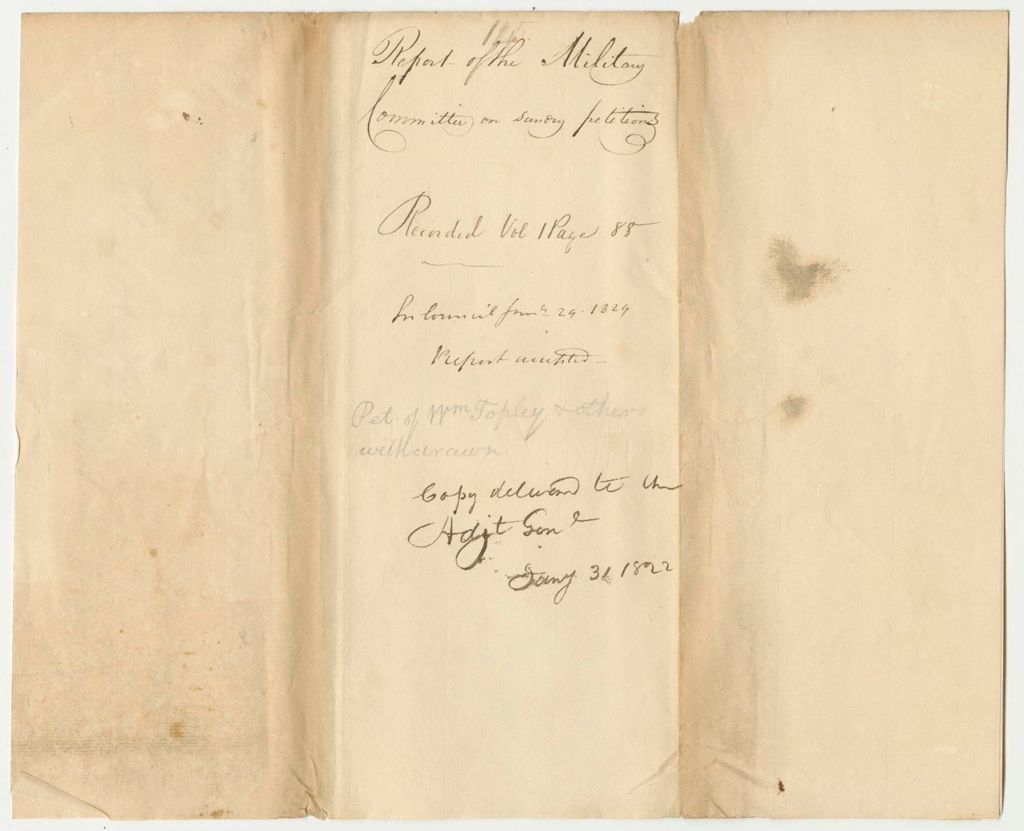 Report of the Military
Committee on sundry petitions
Recorded Vol 1 Page 88
In Council Jany. 29. 1822
Report accepted
Pet. of Wm Topley & others
withdrawn
Copy delivered to the
Adjt Genl
Jany 31 1822